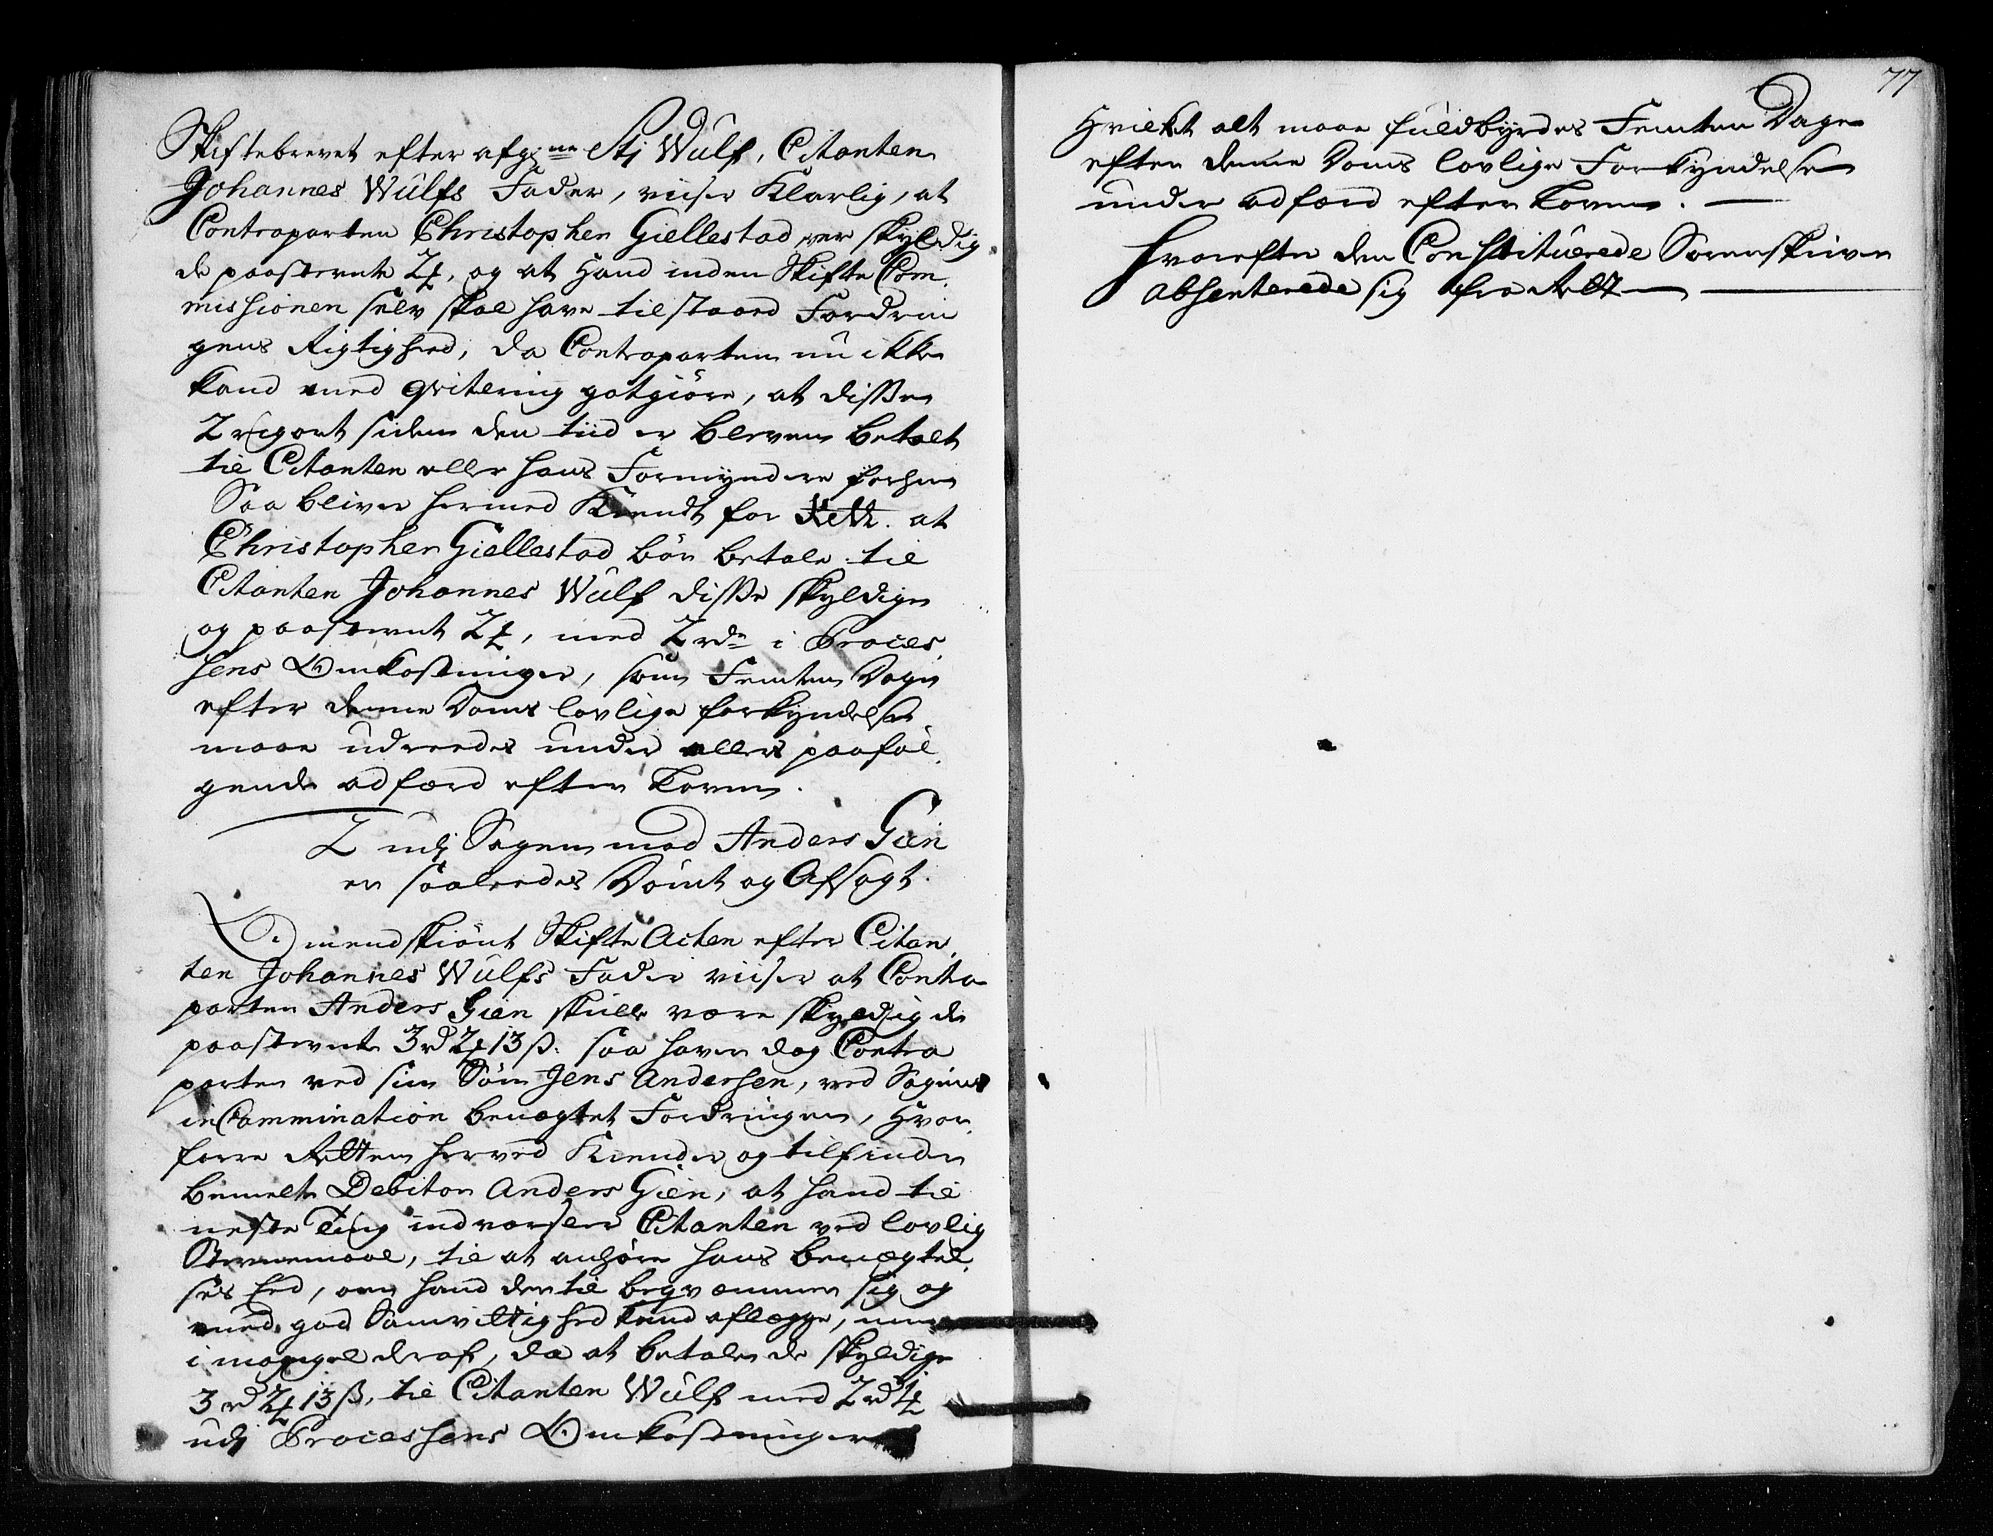 Skiftebrevet efter afg: ne Stj Wulf, Citanten
Johannes Wulfs Fader, viiser Klarlig, at
Contraparten Christopher Giellestad var skyldig
de paastevnte 2 ℔, og at Hand inden Skifte Com,
missionen selv skal have tilstaaed Fordrin
gens Rigtighed, da Contraparten nu ikke
kand med qvitering gotgiöre, at disse
2 siden den tiid er bleven betalt
til Citanten eller hans Formyndere forhen
Saa bliver hermed Kiendt for Rett. at
Christopher Giellestad bör betale til
Citanten Johannes Wulf disse skyldige
og paastevnt 2 ℔, med 2 rdr i Proces,
sens Omkostninger, som Femten Dage
efter denne Doms lovlige forkyndelse
maae udreedes under ellers paaföl,
gende adfærd efter Loven.
2 udj Sagen mod Anders Gien
er saaleedes Dömt og Afsagt.
Omendskiönt Skifte Acten efter Citan,
ten Johannes Wulfs Fader viiser at Contra
parten Anders Gien skulle være skyldig de
paastevnte 3 rd 2 ℔ 13 ß: saa haver dog Contra
parten ved sin Sön Jens Andersen, ved Sagens
inCammination benægtet Fordringen, Hvor,
forre Retten herved Kiender og tilfinder
bemelte Debitor Anders Gien, at hand til
neste Ting indvarsler Citanten ved lovlig
Stevnemaal, til at anhöre hans benægtel,
ses Eed, om hand dertil beqvæmmer sig og
med god Samvittighed kand aflægge, men
i mangel deraf, da at betale de skyldige
3 rd 2 ℔ 13 ß, til Citanten Wulf med 2 rd 1 ℔
udj Processens Omkostninger
77
Hvilket alt maae fuldbyrdes Femten Dage
efter denne Doms lovlige Forkyndelse
under adfærd efter Loven.
Hvorefter den Constituerede Sorenskriver
absenterede sig fra Rett